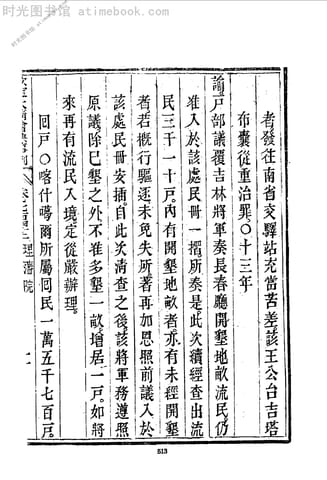 时光图书馆 - atimebook.com
者發往南省交驛站充當苦差該王公台吉塔
布囊從重治罪○十三年
諭戶部議覆吉林將軍奏長春廳開墾地畝流民仍
准入於該處民冊一摺所奏是此次續經查出流
民三千一十戶內有開墾地畝者亦有未經開墾
者若概行驅逐未免失所著再加恩照前議入於
該處民冊安插自此次清查之後該將軍務遵照
原議除已墾之外不准多墾一畝增居一戶如將
來再有流民入境定從嚴辦理
回戶○喀什噶爾所屬回民一萬五千七百戶
理藩院
513